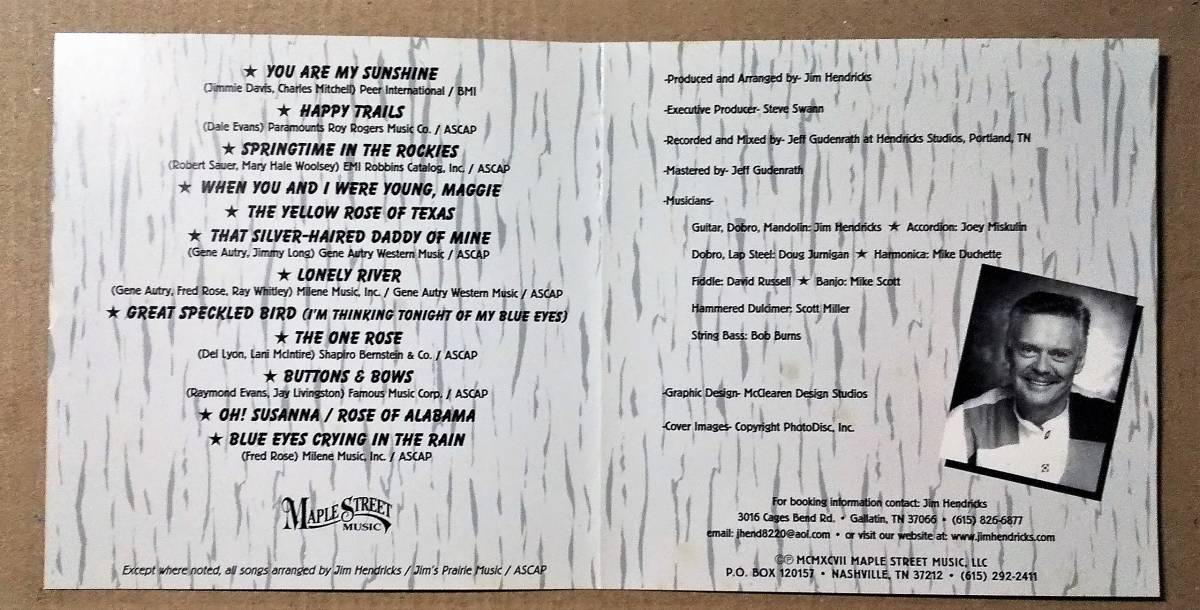 ★ YOU ARE MY SUNSHINE
(Jimmie Davis, Charles Mitchell) Peer International / BMI
★ HAPPY TRAILS
(Dale Evans) Paramounts Roy Rogers Music Co. / ASCAP
★ SPRINGTIME IN THE ROCKIES
(Robert Sauer, Mary Hale Woolsey) EMI Robbins Catalog, Inc. / ASCAP
★ WHEN YOU AND I WERE YOUNG, MAGGIE
★ THE YELLOW ROSE OF TEXAS
★ THAT SILVER-HAIRED DADDY OF MINE
(Gene Autry, Jimmy Long) Gene Autry Western Music / ASCAP
★ LONELY RIVER
(Gene Autry, Fred Rose, Ray Whitley) Milene Music, Inc. / Gene Autry Western Music / ASCAP
★ GREAT SPECKLED BIRD (I'M THINKING TONIGHT OF MY BLUE EYES)
★ THE ONE ROSE
(Del Lyon, Lani McIntire) Shapiro Bernstein & Co. / ASCAP
★ BUTTONS & BOWS
(Raymond Evans, Jay Livingston) Famous Music Corp. / ASCAP
★ OH! SUSANNA / ROSE OF ALABAMA
★ BLUE EYES CRYING IN THE RAIN
(Fred Rose) Milene Music, Inc. / ASCAP
MAPLE STREET
MUSIC
Except where noted, all songs arranged by Jim Hendricks / Jim's Prairie Music / ASCAP
-Produced and Arranged by- Jim Hendricks
-Executive Producer- Steve Swann
-Recorded and Mixed by- Jeff Gudenrath at Hendricks Studios, Portland, TN
-Mastered by- Jeff Gudenrath
-Musicians-
Guitar, Dobro, Mandolin: Jim Hendricks ★ Accordion: Joey Miskulin
Dobro, Lap Steel: Doug Jurnigan ★ Harmonica: Mike Duchette
Fiddle: David Russell ★ Banjo: Mike Scott
Hammered Dulcimer: Scott Miller
String Bass: Bob Burns
-Graphic Design- McClearen Design Studios
-Cover Images- Copyright PhotoDisc, Inc.
For booking information contact: Jim Hendricks
3016 Cages Bend Rd. • Gallatin, TN 37066 • (615) 826-6877
email: jhend8220@aol.com • or visit our website at: www.jimhendricks.com
©℗ MCMXCVII MAPLE STREET MUSIC, LLC
P.O. BOX 120157 • NASHVILLE, TN 37212 • (615) 292-2411